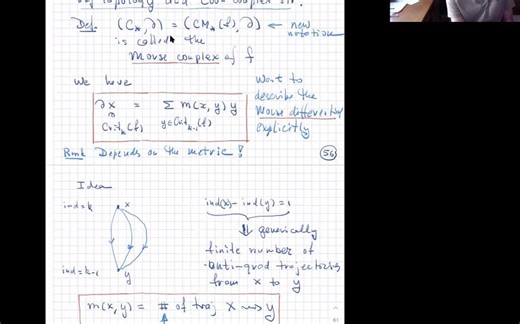 of topology and
Def. (C*, ∂) = (CM*(f), ∂) ← new notation
is called the
Morse complex of f
We have
∂x = Σ m(x, y) y
Crit_k(f) y∈Crit_{k-1}(f)
Want to
describe the
Morse differential
explicitly
Rmk Depends on the metric !
56
Idea
ind=k x
ind=k-1 y
ind(x) - ind(y) = 1
⇓ generically
finite number of
anti-grad trajectories
from x to y
m(x, y) = # of traj x ⇝ y